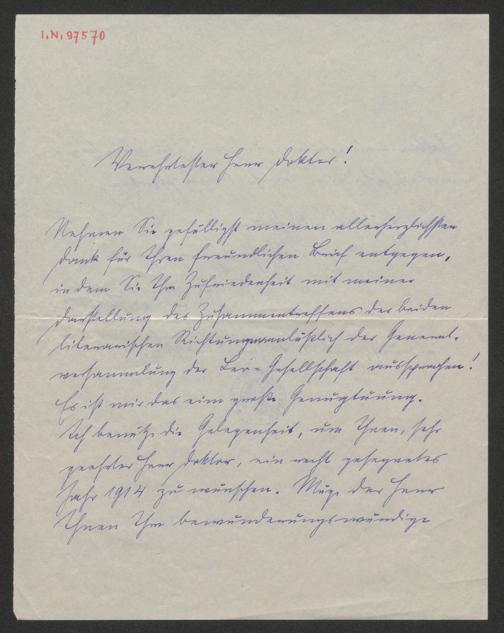 I.N. 97570
Verehrtester Herr Doktor!
Nehmen Sie gefälligst meinen allerherzlichsten
Dank für Ihren freundlichen Brief entgegen,
in dem Sie Ihre Zufriedenheit mit meiner
Darstellung des Zusammentreffens der beiden
literarischen Richtungen anläßlich der General-
versammlung der Leo-Gesellschaft aussprachen!
Es ist mir das eine große Genugtuung.
Ich benütze die Gelegenheit, um Ihnen, sehr
geehrter Herr Doktor, ein recht gesegnetes
Jahr 1914 zu wünschen. Möge der Herr
Ihnen Ihre bewunderungswürdige